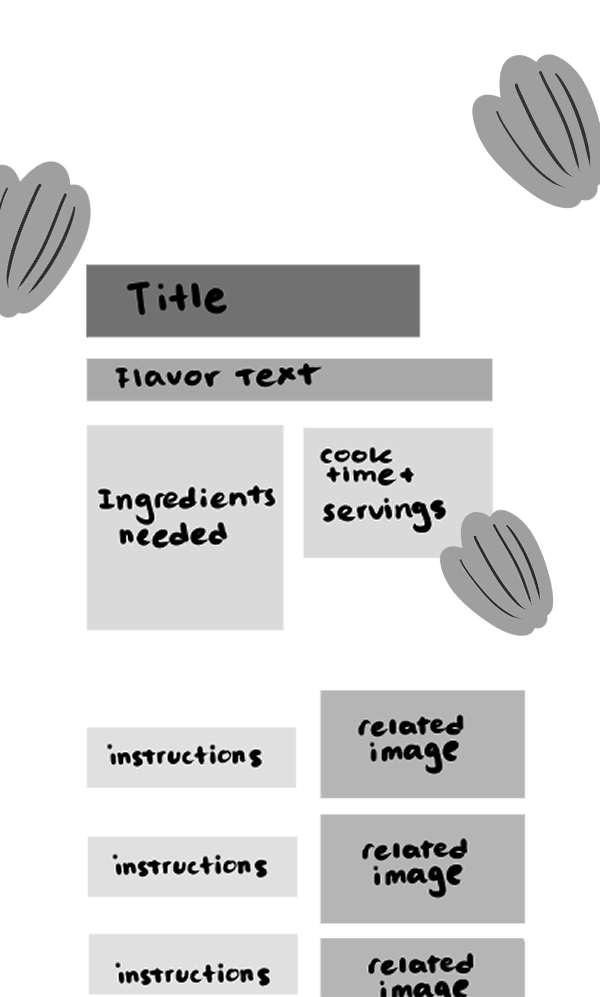 Title
Flavor Text
Ingredients
needed
cook
time +
servings
instructions
related
image
instructions
related
image
instructions
related
image